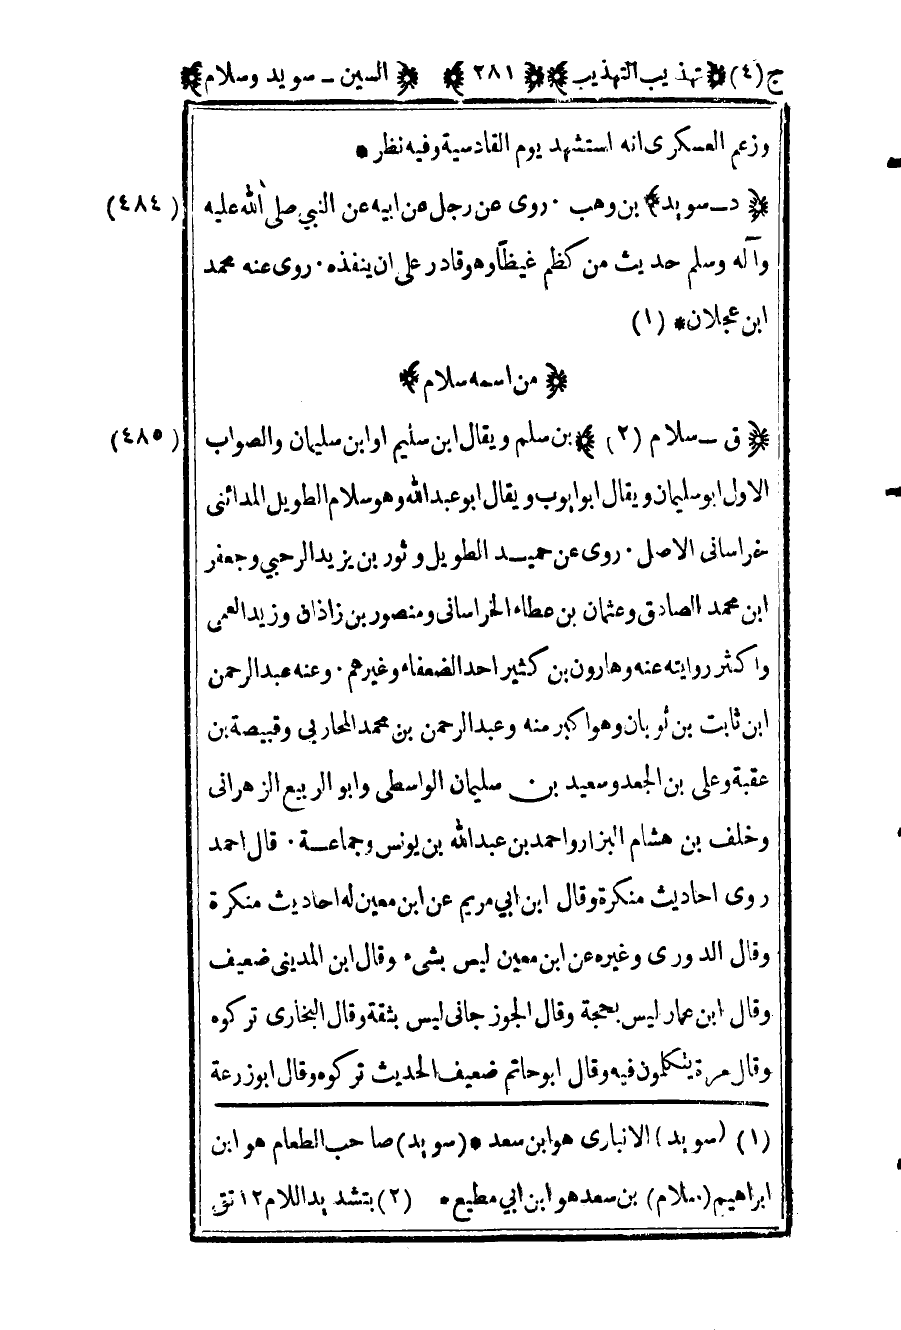 ج(٤) ﴿تهذيب التهذيب﴾ ﴿٢٨١﴾ ﴿السين ـ سويد وسلام﴾
وزعم العسكرى انه استشهد يوم القادسية وفيه نظر *
(٤٨٤) ﴿د ـ سويد﴾ بن وهب · روى عن رجل عن ابيه عن النبي صلى الله عليه
وآله وسلم حديث من كظم غيظاً وهو قادر على ان ينفذه · روى عنه محمد
ابن عجلان * (١)
﴿من اسمه سلام﴾
(٤٨٥) ﴿ق ـ سلام (٢)﴾ بن سلم ويقال ابن سليم او ابن سليمان والصواب
الاول ابو سليمان ويقال ابو ايوب ويقال ابو عبد الله وهو سلام الطويل المدائنى
خراسانى الاصل · روى عن حميد الطويل وثور بن يزيد الرحبي وجعفر
ابن محمد الصادق وعثمان بن عطاء الخراسانى ومنصور بن زاذان وزيد العمى
واكثر روايته عنه وهارون بن كثير احد الضعفاء وغيرهم · وعنه عبد الرحمن
ابن ثابت بن ثوبان وهو اكبر منه وعبد الرحمن بن محمد المحاربي وقبيصة بن
عقبة وعلى بن الجعد وسعيد بن سليمان الواسطى وابو الربيع الزهرانى
وخلف بن هشام البزار واحمد بن عبد الله بن يونس وجماعة · قال احمد
روى احاديث منكرة وقال ابن ابي مريم عن ابن معين له احاديث منكرة
وقال الدورى وغيره عن ابن معين ليس بشىء وقال ابن المدينى ضعيف
وقال ابن عمار ليس بحجة وقال الجوزجانى ليس بثقة وقال البخارى تركوه
وقال مرة يتكلمون فيه وقال ابو حاتم ضعيف الحديث تركوه وقال ابو زرعة
(١) (سويد) الانبارى هو ابن سعد * (سويد) صاحب الطعام هو ابن
ابراهيم (سلام) بن سعد هو ابن ابي مطيع * (٢) بتشديد اللام ١٢ تق